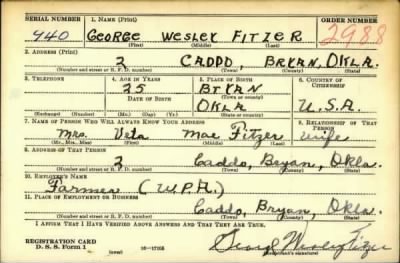 SERIAL NUMBER 1. NAME (Print) ORDER NUMBER
940 GEORGE WESLEY FITZER 2988
(First) (Middle) (Last)
2. ADDRESS (Print)
2 CADDO, BRYAN, OKLA.
(Number and street or R. F. D. number) (Town) (County) (State)
3. TELEPHONE 4. AGE IN YEARS 5. PLACE OF BIRTH 6. COUNTRY OF CITIZENSHIP
25 BRYAN
DATE OF BIRTH (Town or county)
OKLA U.S.A.
(Exchange) (Number) (Mo.) (Day) (Yr.) (State or country)
7. NAME OF PERSON WHO WILL ALWAYS KNOW YOUR ADDRESS 8. RELATIONSHIP OF THAT PERSON
Mrs. Veta Mae Fitzer wife
(Mr., Mrs., Miss) (First) (Middle) (Last)
9. ADDRESS OF THAT PERSON
2 Caddo, Bryan, Okla.
(Number and street or R. F. D. number) (Town) (County) (State)
10. EMPLOYER'S NAME
Farmer (W.P.A.)
11. PLACE OF EMPLOYMENT OR BUSINESS
Caddo, Bryan, Okla.
(Number and street or R. F. D. number) (Town) (County) (State)
I AFFIRM THAT I HAVE VERIFIED ABOVE ANSWERS AND THAT THEY ARE TRUE.
REGISTRATION CARD
D. S. S. Form 1 (over) George Wesley Fitzer
(Registrant's signature)